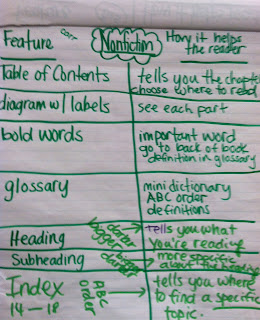 Feature
Nonfiction
How it helps
the reader
Table of Contents
tells you the chapter
choose where to read
diagram w/ labels
see each part
bold words
important word
go to back of book
definition in glossary
glossary
mini dictionary
ABC order
definitions
Heading
bigger
darker
tells you what
you're reading
Subheading
darker
more specific
about the heading
Index
14-18
ABC
order
tells you where
to find a specific
topic.